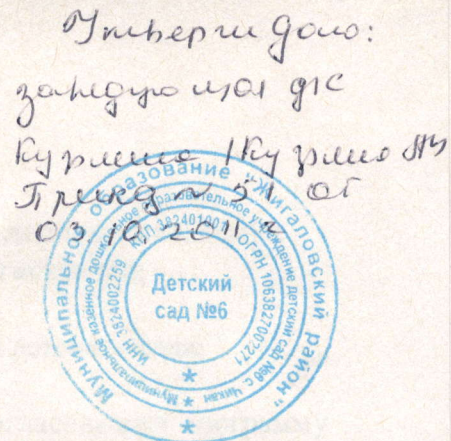 Утверждаю:
заведующая д/с
Приказ № 51 от
03.10.2011 г
Муниципальное образование "Жигаловский район"
Муниципальное казённое дошкольное образовательное учреждение детский сад №6 с. Чикан
ИНН 3824002259 КПП 382401001 ОГРН 1063827002271
Детский
сад №6